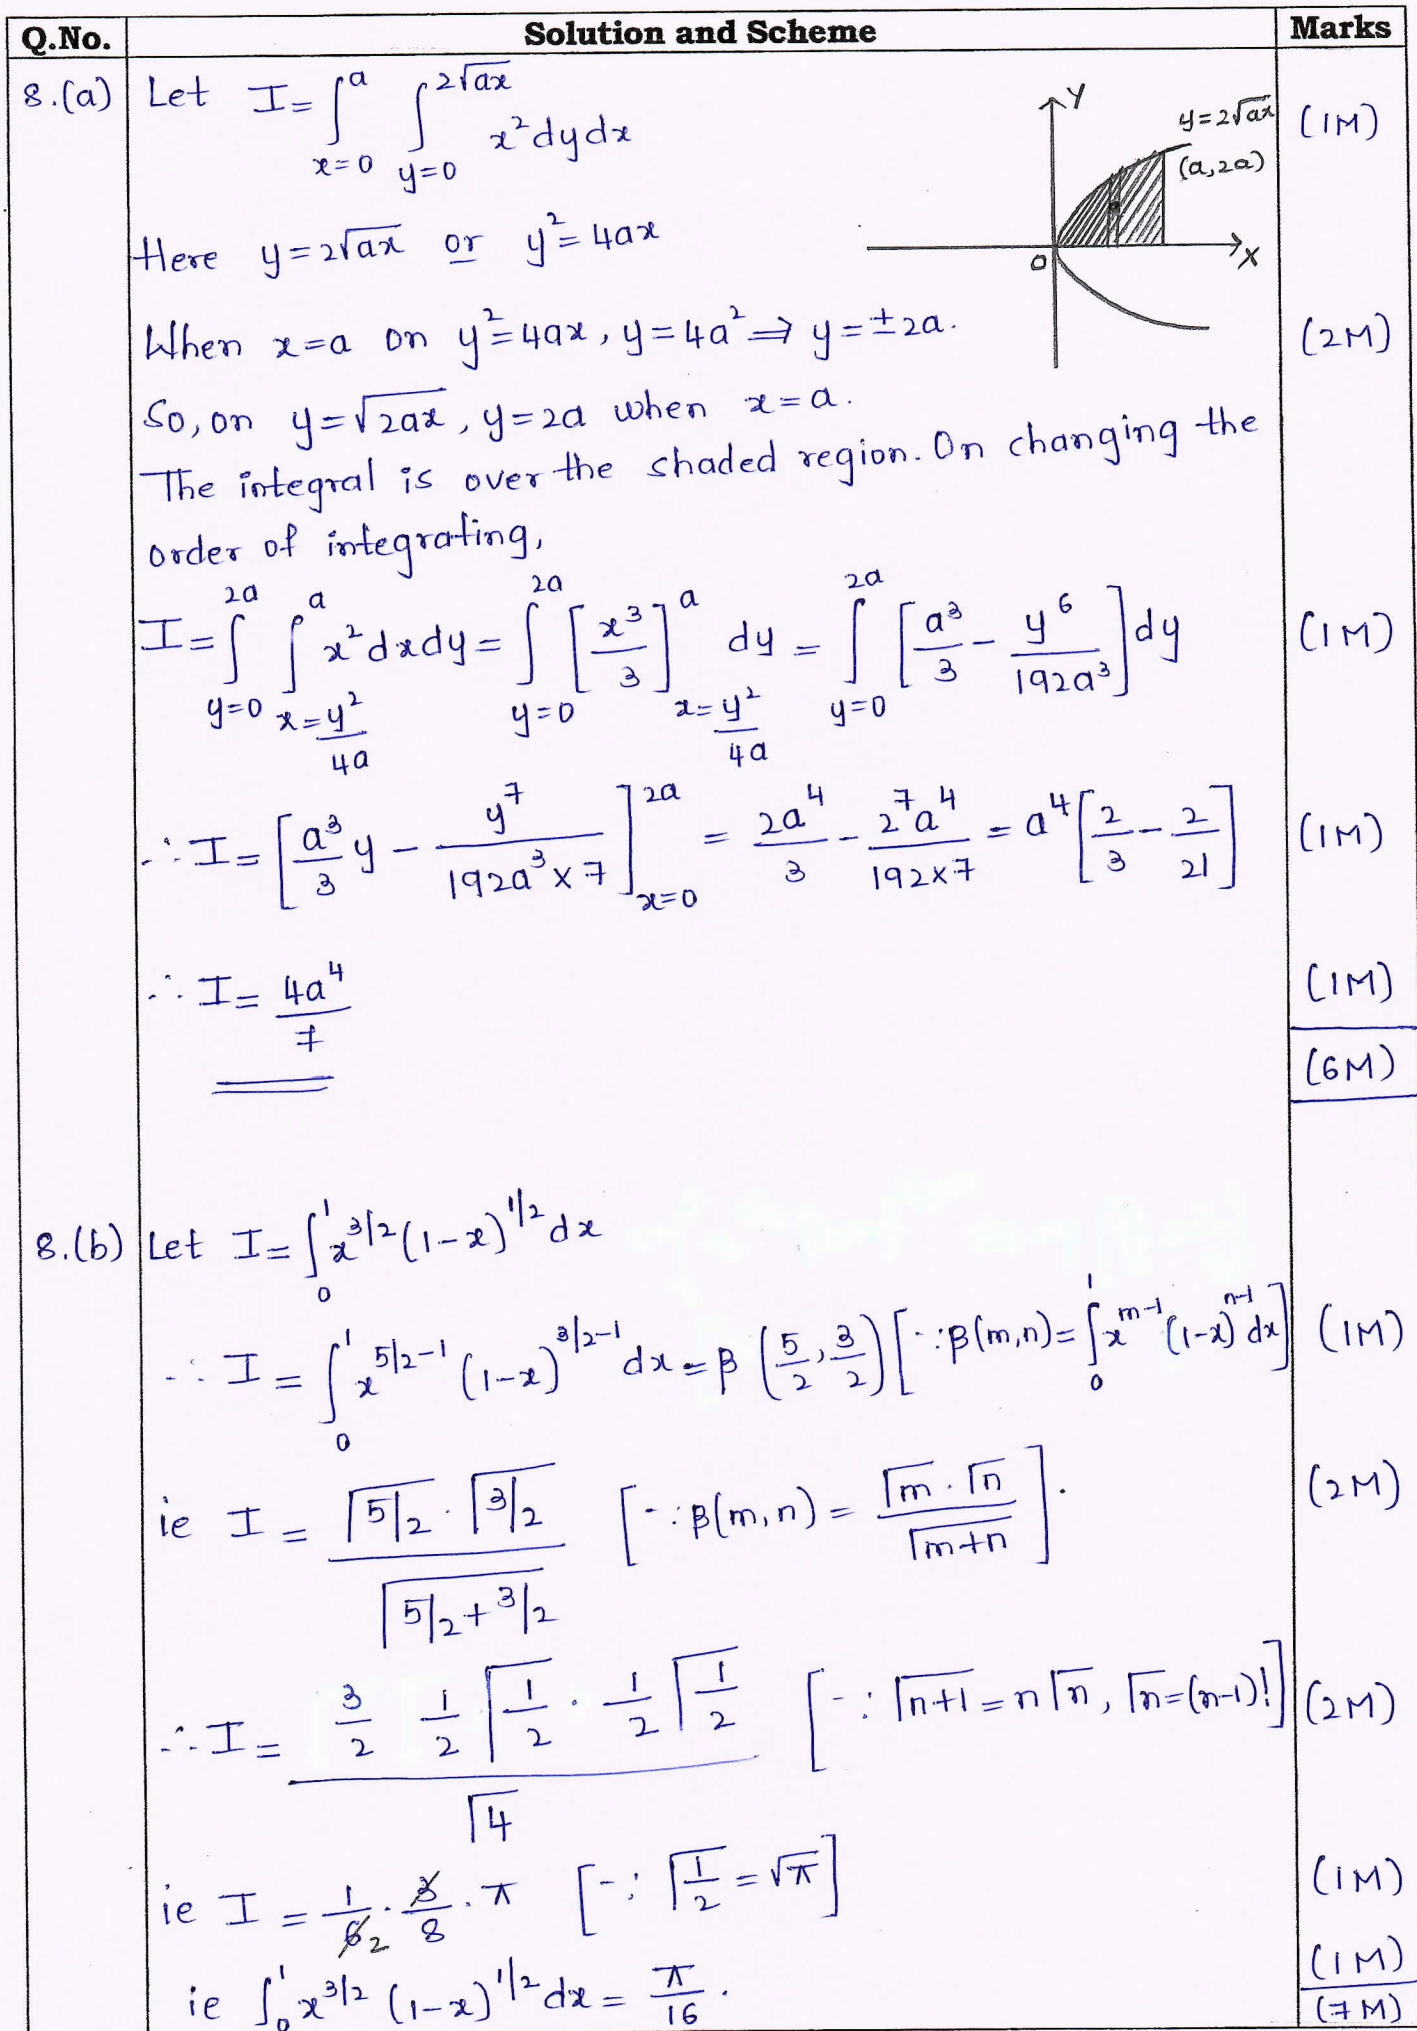 Q.No. Solution and Scheme Marks
8.(a) Let I = ∫_{x=0}^{a} ∫_{y=0}^{2√ax} x² dy dx (1M)
Y
y=2√ax
(a,2a)
O
X
Here y=2√ax or y²=4ax
When x=a on y²=4ax, y=4a² ⇒ y=±2a. (2M)
So, on y=√2ax, y=2a when x=a.
The integral is over the shaded region. On changing the
order of integrating,
I = ∫_{y=0}^{2a} ∫_{x=y²/4a}^{a} x² dx dy = ∫_{y=0}^{2a} [x³/3]_{x=y²/4a}^{a} dy = ∫_{y=0}^{2a} [a³/3 - y⁶/192a³] dy (1M)
∴ I = [a³/3 y - y⁷/192a³×7]_{x=0}^{2a} = 2a⁴/3 - 2⁷a⁴/192×7 = a⁴[2/3 - 2/21] (1M)
∴ I = 4a⁴/7 (1M)
(6M)
8.(b) Let I = ∫₀¹ x^{3/2} (1-x)^{1/2} dx
∴ I = ∫₀¹ x^{5/2-1} (1-x)^{3/2-1} dx = β(5/2, 3/2) [∵ β(m,n) = ∫₀¹ x^{m-1} (1-x)^{n-1} dx] (1M)
ie I = Γ5/2 · Γ3/2 / Γ5/2+3/2 [∵ β(m,n) = Γm · Γn / Γm+n]. (2M)
∴ I = 3/2 1/2 Γ1/2 · 1/2 Γ1/2 / Γ4 [∵ Γn+1 = n Γn, Γn=(n-1)!] (2M)
ie I = 1/6 2 · 3/8 · π [∵ Γ1/2 = √π] (1M)
ie ∫₀¹ x^{3/2} (1-x)^{1/2} dx = π/16. (1M)
(7M)